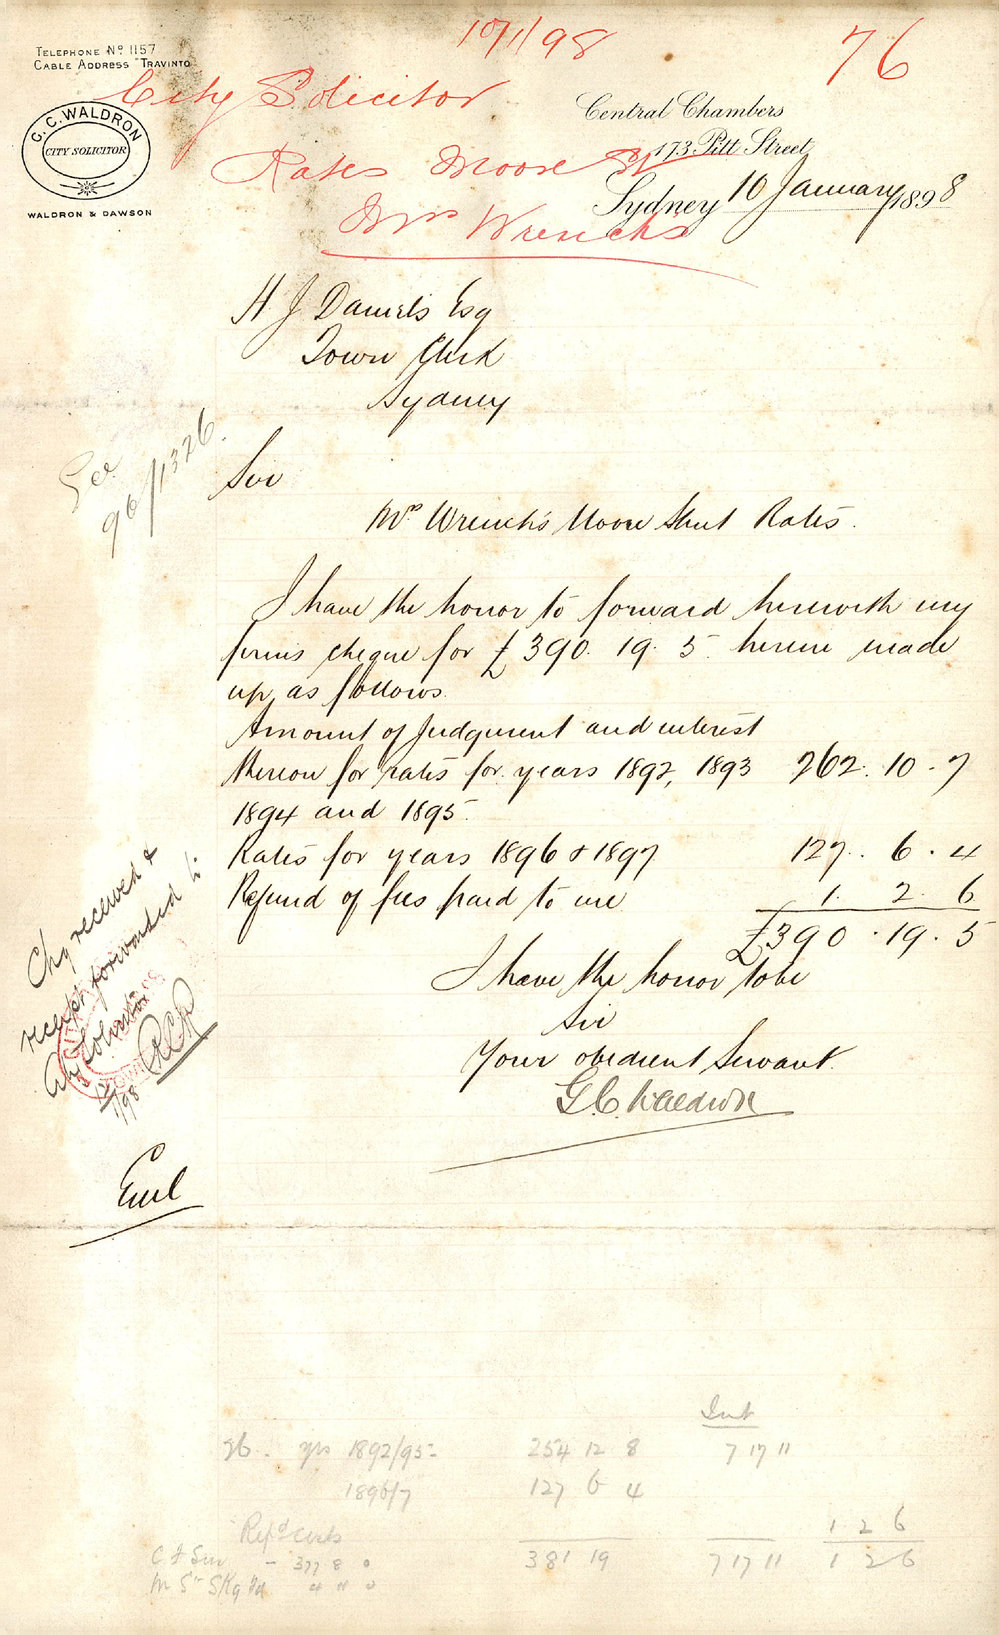 10/1/98
76
TELEPHONE No 1157
CABLE ADDRESS "TRAVINTO"
City Solicitor
G. C. WALDRON
CITY SOLICITOR
WALDRON & DAWSON
Central Chambers
173 Pitt Street
Sydney 10 January 1898
Rates Moore St
Mrs Wrench's
H J Daniels Esq
Town Clerk
Sydney
See
96/1326.
Sir
Mrs Wrench's Moore Street Rates.
I have the honor to forward herewith my
firms cheque for £390. 19. 5 herein made
up as follows.
Amount of Judgment and interest
thereon for rates for years 1892, 1893 262. 10. 7
1894 and 1895.
Rates for years 1896 & 1897 127. 6. 4
Refund of fees paid to me 1. 2. 6
£390. 19. 5
I have the honor to be
Sir
Your obedient Servant.
G. C. Waldron
Chq received &
receipt forwarded to
City Solicitor
1/98
Encl
Int
yrs 1892/95 254 12 8 7 17 11
1896/7 127 6 4
Refd costs 1 2 6
381 19 7 17 11 1 2 6
377 8 0